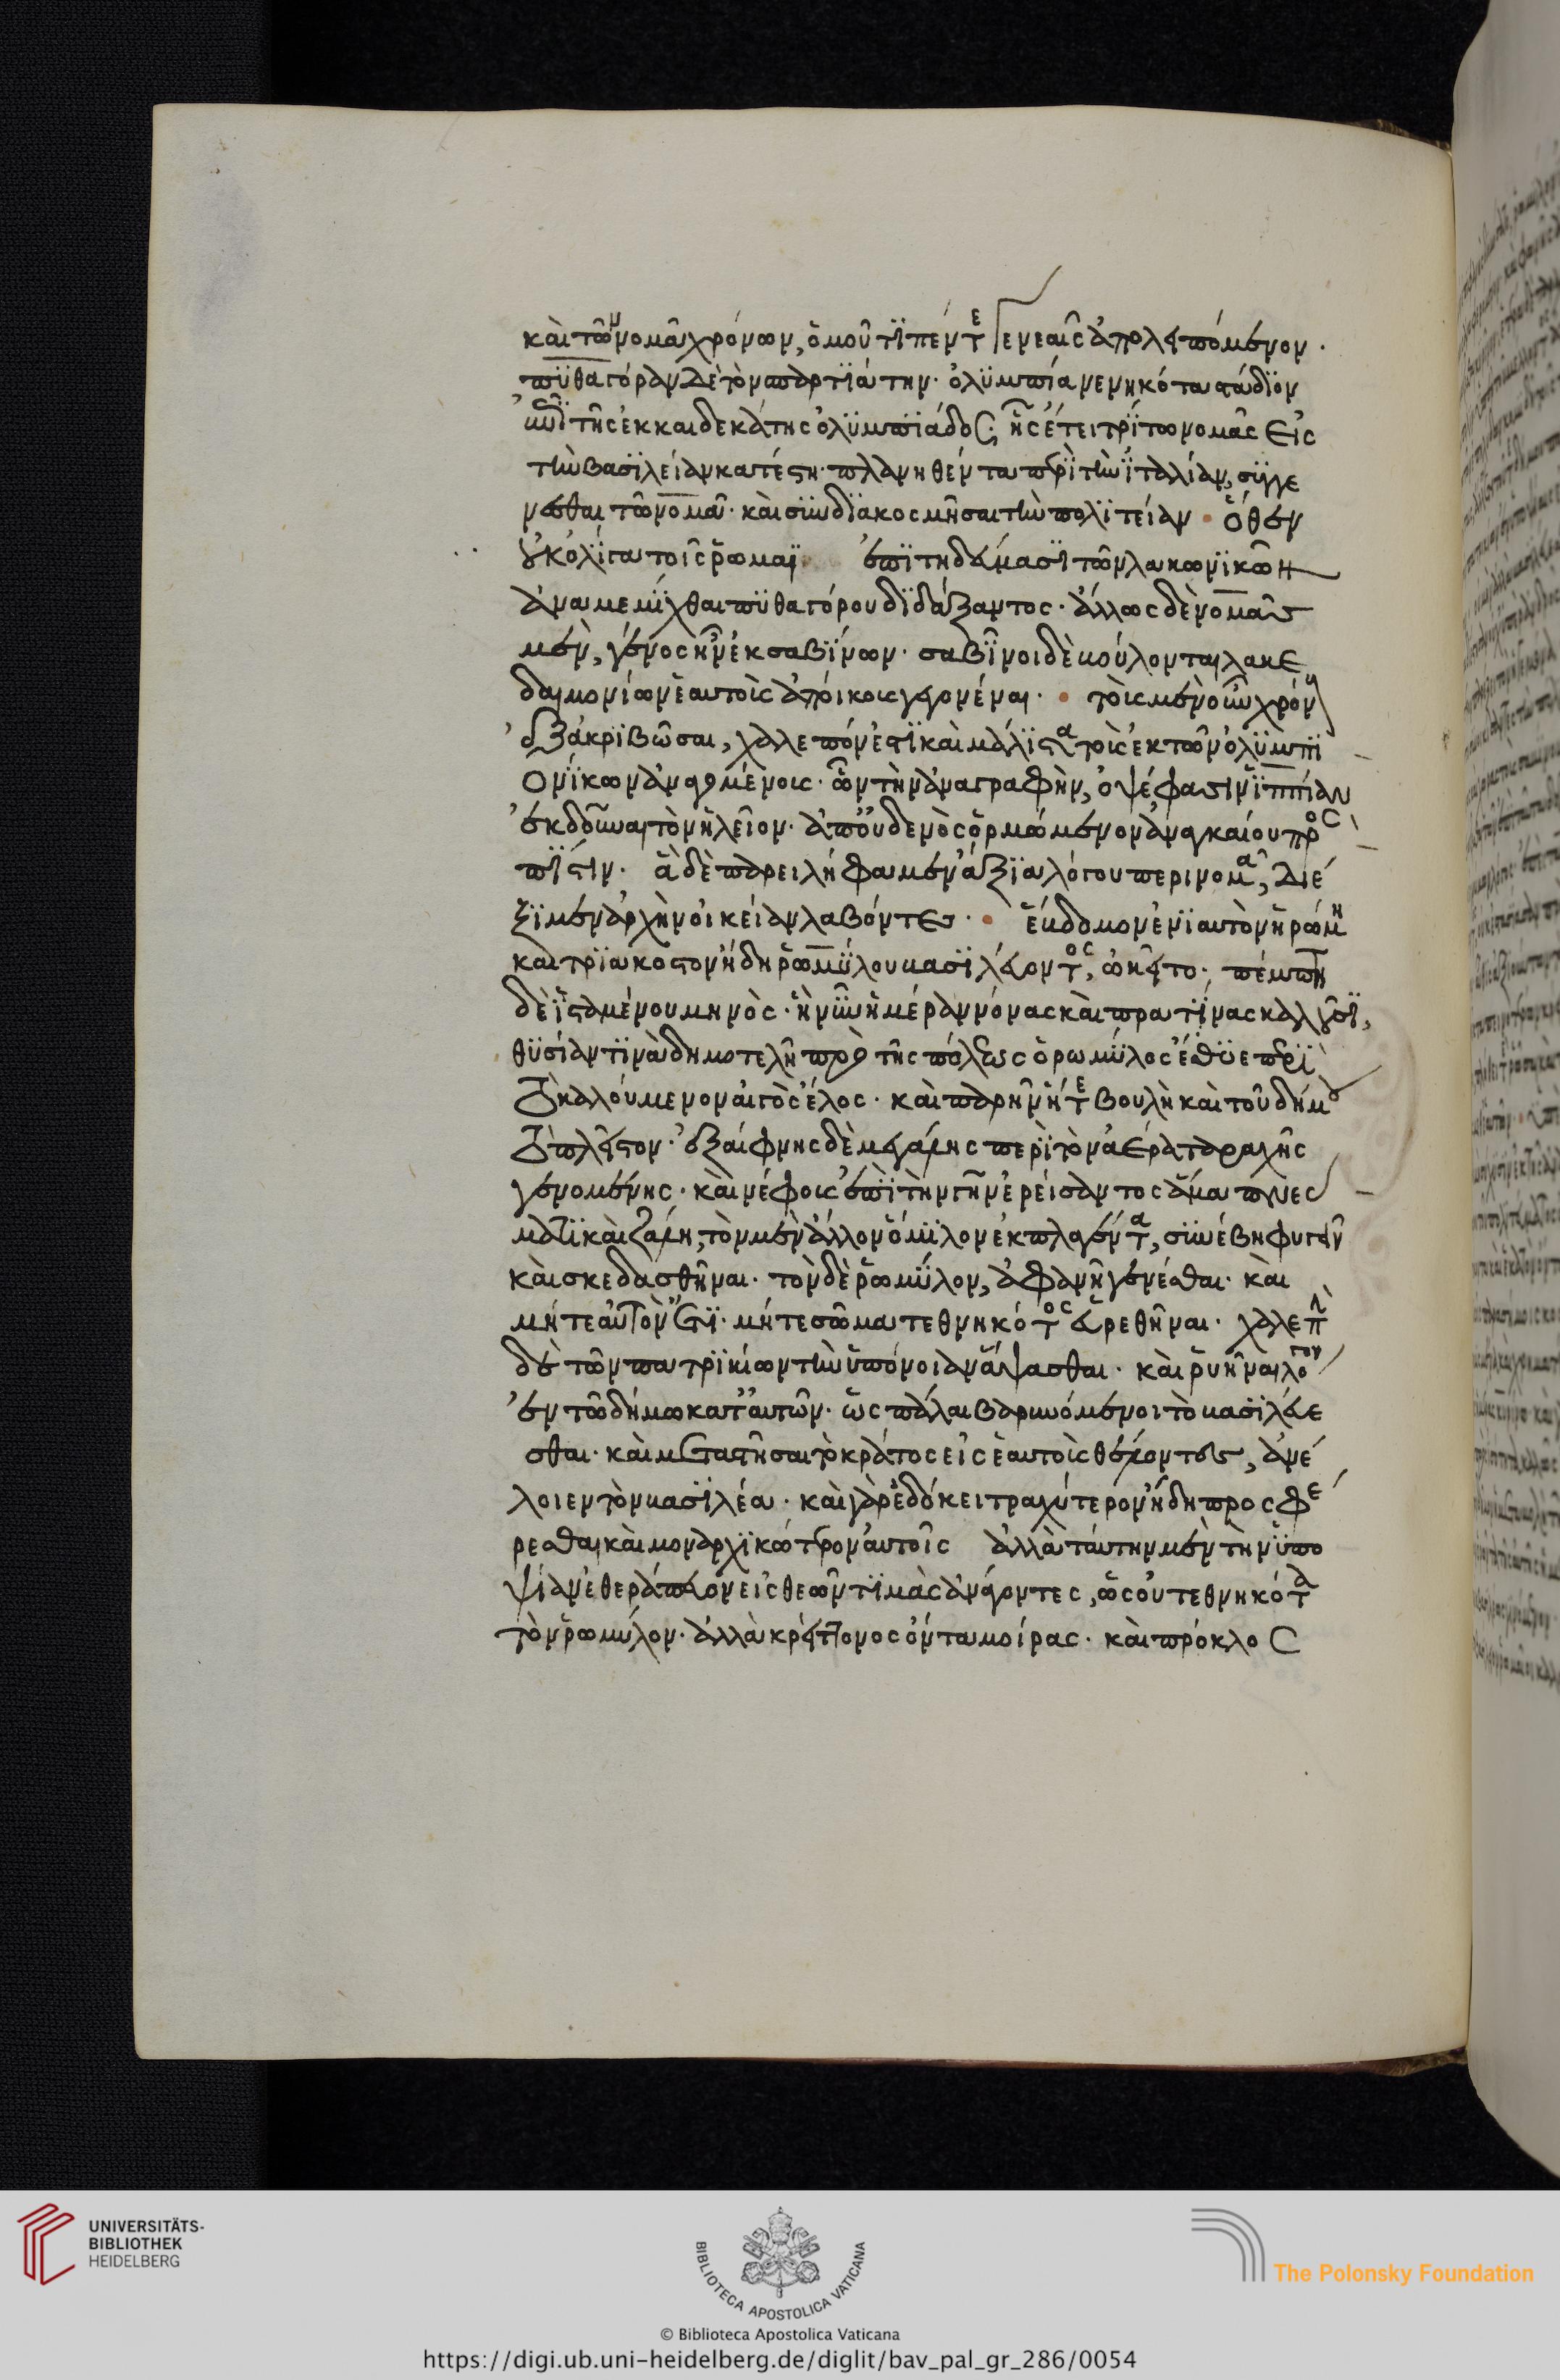 καὶ τῶν νομᾶ χρόνων, ὁμοῦ τϊ πέντε γενεαῖς ἀπολειπόμενον·
πϋθαγόραν δὲ τὸν σπαρτϊάτην· ὀλϋμπία νενηκότα στάδϊον
ἐπὶ τῆς ἑκκαιδεκάτης ὀλϋμπϊάδος· ἧς ἔτει τρίτω νομᾶς εἰς
τὴν βασϊλείαν κατέστη· πλανηθέντα περῒ τὴν ϊταλίαν, συγγε
νέσθαι τῶ νομᾶ· καὶ συνδϊακοσμῆσαι τὴν πολϊτείαν · ὅθεν
οὐκ ὀλίγα τοῖς ῥωμαϊ ἐπϊτηδεύμασϊ τῶν λακωνϊκῶν
ἀναμεμίχθαι πϋθαγόρου δϊδάξαντος· ἄλλως δὲ νομᾶς
μὲν, γένος ἦν ἐκ σαβϊνων· σαβῖνοι δὲ βούλονται λακε
δαιμονίων ἑαυτοὺς ἀποίκους γεγονέναι · τοὺς μὲν οὖν χρόνους
ἐξακρϊβῶσαι, χαλεπόν ἐστϊ καὶ μάλϊστα τοὺς ἐκ τῶν ὀλϋμπϊ
ονϊκων ἀναγομένους· ὧν τὴν ἀναγραφὴν, ὀψέ φασϊν ἱππίαν
ἐκδοῦναι τὸν ἠλεῖον· ἀπ' οὐδενὸς ὁρμώμενον ἀναγκαίου πρὸς
πϊστιν· ἃ δὲ παρειλήφαμεν ἄξϊα λόγου περι νομᾶ, διέ
ξϊμεν ἀρχὴν οἰκείαν λαβόντες · ἕβδομον ἐνϊαυτὸν ἡ ῥώμη
καὶ τρϊακοστὸν ἤδη ῥωμϋλου βασϊλεύοντος, ὠκεῖτο· πέμπτη
δὲ ϊσταμένου μηνὸς· ἣν νῦν ἡμέραν νόνας καὶ πρατϊνας καλοῦσϊ,
θϋσίαν τϊνὰ δημοτελῆ πρὸ τῆς πόλεως ὁ ρωμϋλος ἔθϋε περὶ
τὸ καλούμενον αἰγὸς ἕλος· καὶ παρῆν ἥ τε βουλὴ καὶ τοῦ δήμου
τὸ πλεῖστον· ἐξαίφνης δὲ μεγάλης περὶ τὸν ἀέρα ταραχῆς
γενομένης· καὶ νέφους ἐπὶ τὴν γῆν ἐρείσαντος ἅμα πνεύ
ματϊ καὶ ζάλη, τὸν μὲν ἄλλον ὅμϊλον ἐκπλαγέντα, συνέβη φυγεῖν
καὶ σκεδασθῆναι· τὸν δὲ ῥωμϋλον, ἀφανῆ γενέσθαι· καὶ
μήτε αὐτὸν ἔτϊ· μήτε σῶμα τεθνηκότος εὑρεθῆναι· χαλεπὴν
δέ τῶν πατρϊκίων τὴν ὑπόνοιαν ἅψασθαι· καὶ ῥυῆναι λόγον
ἐν τῶ δήμω κατ' αὐτῶν· ὡς πάλαι βαρυνόμενοι τὸ βασϊλεύε
σθαι· καὶ μεταστῆσαι τὸ κράτος εἰς ἑαυτοὺς θέλοντες, ἀνέ
λοιεν τὸν βασϊλέα· καὶ γὰρ ἐδόκει τραχύτερον ἤδη προςφέ
ρεσθαι καὶ μοναρχϊκώτερον αὐτοῖς ἀλλὰ ταύτην μὲν τὴν ὑπο
ψίαν ἐθεράπευον εἰς θεῶν τϊμὰς ἀνάγοντες, ὡς οὐ τεθνηκότα
τὸν ῥωμύλον· ἀλλὰ κρείττονος ὄντα μοίρας· καὶ πρόκλος
UNIVERSITÄTS-
BIBLIOTHEK
HEIDELBERG
BIBLIOTECA APOSTOLICA VATICANA
The Polonsky Foundation
© Biblioteca Apostolica Vaticana
https://digi.ub.uni-heidelberg.de/diglit/bav_pal_gr_286/0054